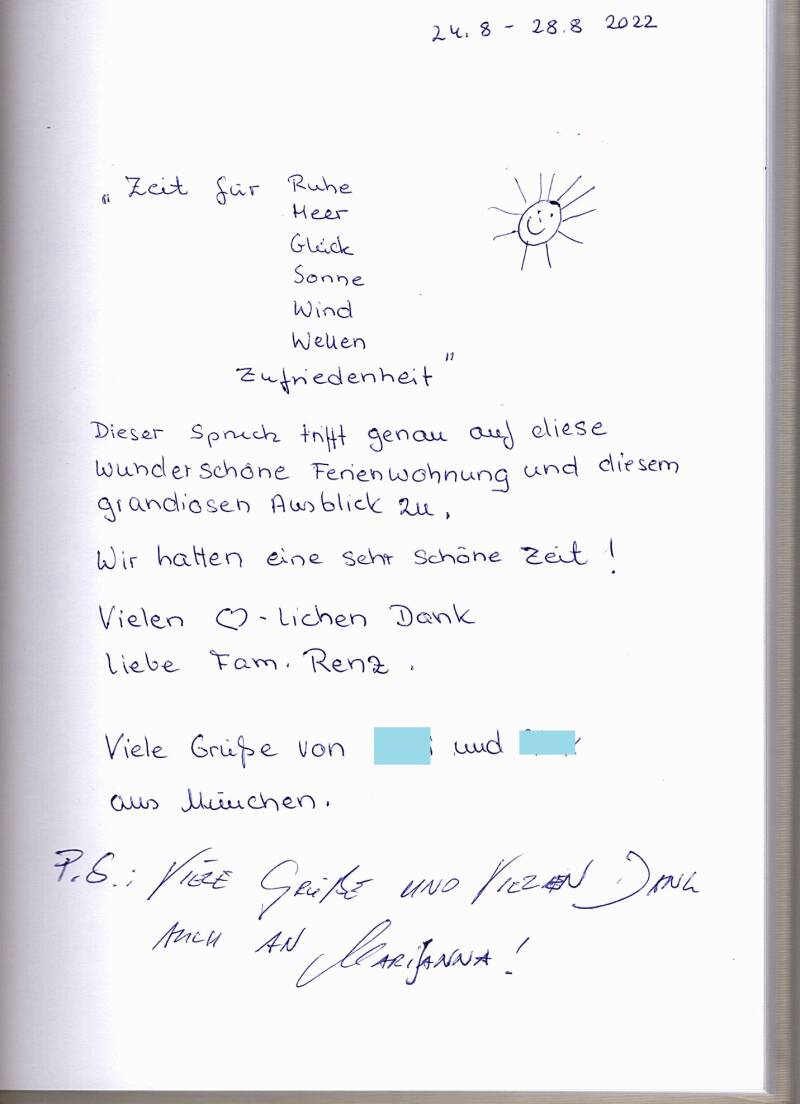 24.8 - 28.8 2022
„Zeit für Ruhe
Meer
Glück
Sonne
Wind
Wellen
Zufriedenheit"
Dieser Spruch trifft genau auf diese
wunderschöne Ferienwohnung und diesem
grandiosen Ausblick zu.
Wir hatten eine sehr schöne Zeit!
Vielen ♡-lichen Dank
liebe Fam. Renz.
Viele Grüße von und
aus München.
P.S.: VIELE GRÜßE UND VIELEN DANK
AUCH AN MARIJANNA!